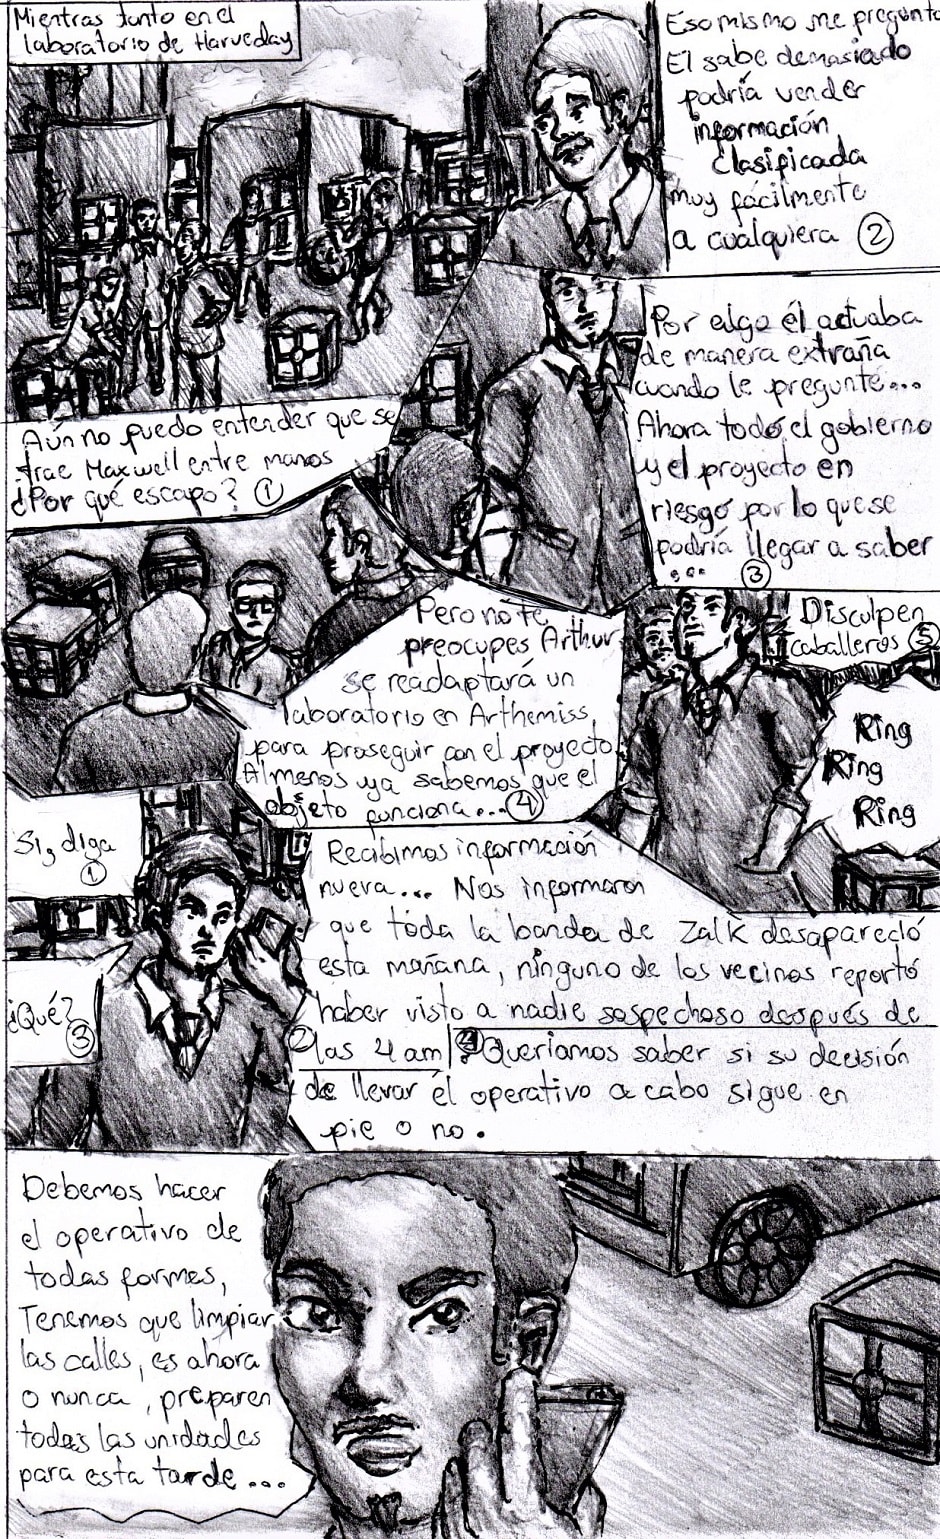 Mientras tanto en el
laboratorio de Harveday
Aún no puedo entender que se
trae Maxwell entre manos
¿Por qué escapo? ①
Eso mismo me pregunto
El sabe demasiado
podría vender
información
clasificada
muy fácilmente
a cualquiera ②
Por algo él actuaba
de manera extraña
cuando le pregunté...
Ahora todo el gobierno
y el proyecto en
riesgo por lo que se
podría llegar a saber
... ③
Pero no te
preocupes Arthur
se readaptará un
laboratorio en Arthemiss,
para proseguir con el proyecto
Al menos ya sabemos que el
objeto funciona... ④
Disculpen
caballeros ⑤
Ring
Ring
Ring
Si, diga
①
Recibimos información
nueva... Nos informaron
que toda la banda de Zalk desapareció
esta mañana, ninguno de los vecinos reportó
haber visto a nadie sospechoso después de
② las 4 am
¿Qué?
③
④ Queriamos saber si su decisión
de llevar el operativo a cabo sigue en
pie o no.
Debemos hacer
el operativo de
todas formes,
Tenemos que limpiar
las calles, es ahora
o nunca, preparen
todas las unidades
para esta tarde...